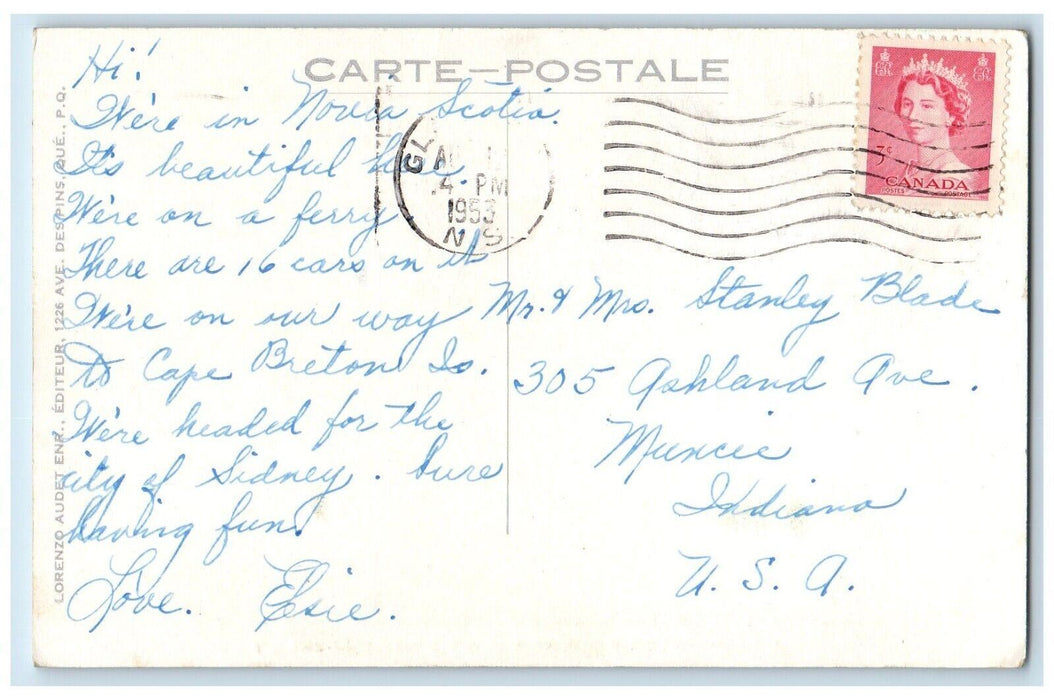 CARTE—POSTALE
Hi!
We're in Nova Scotia.
It's beautiful here.
We're on a ferry
There are 16 cars on it
We're on our way
to Cape Breton Is.
We're headed for the
city of Sidney. Sure
having fun.
Love. Elsie.
4 PM
1953
N.S
3¢
CANADA
POSTES POSTAGE
Mr. & Mrs. Stanley Blade
305 Ashland Ave.
Muncie
Indiana
U. S. A.
LORENZO AUDET ENR., ÉDITEUR, 1226 AVE. DES PINS, QUÉ., P.Q.